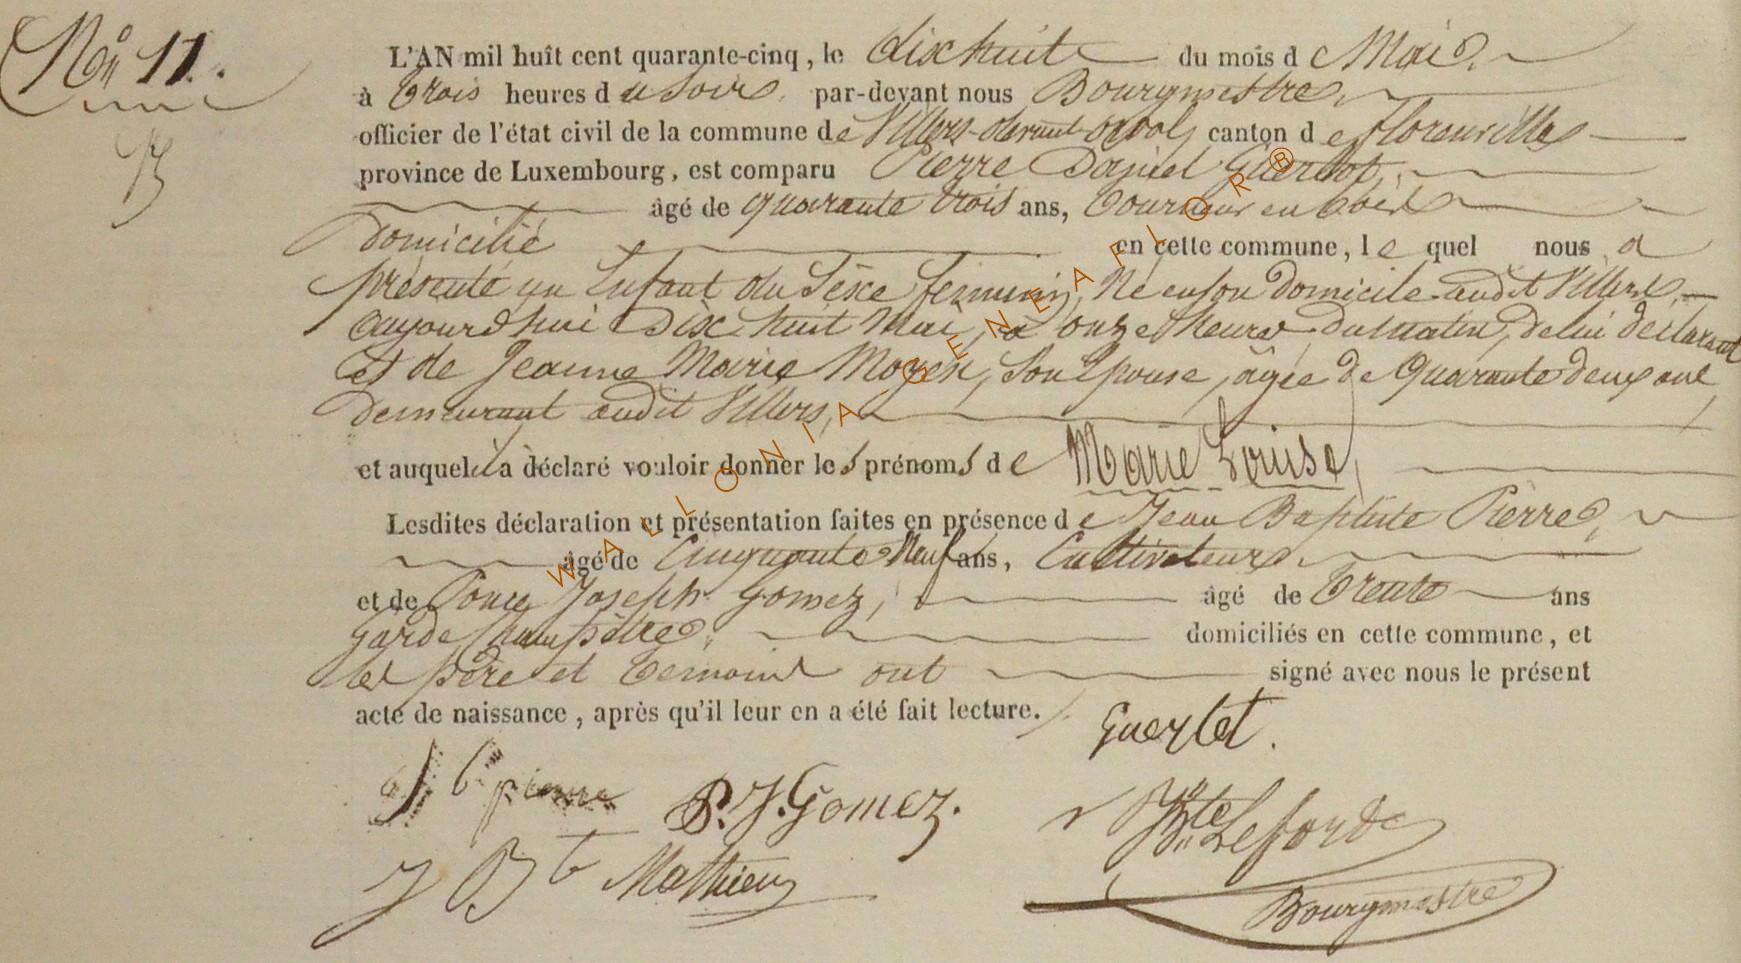 N° 11.
L'AN mil huit cent quarante-cinq, le dix huit du mois de Mai
à trois heures du soir, par-devant nous Bourgmestre,
officier de l'état civil de la commune de Villers-devant-orval, canton de florenville
province de Luxembourg, est comparu Pierre Daniel Guerlot,
âgé de quarante trois ans, tourneur en bois
domicilié en cette commune, lequel nous a
présenté un Enfant du Séxe féminin, Né en son domicile audit Villers,
aujourd'hui Dix huit Mai, à onze heures du matin, de lui déclarant
et de Jeanne Marie Moyen, son Epouse, âgée de Quarante deux ans,
demeurant audit Villers,
et auquel il a déclaré vouloir donner les prénoms de Marie Louise,
Lesdites déclaration et présentation faites en présence de Jean Baptiste Pierre,
âgé de Cinquante Neuf ans, Cultivateur
et de Joseph Gomez, âgé de trente ans
garde champêtre, domiciliés en cette commune, et
les père et temoins ont signé avec nous le présent
acte de naissance, après qu'il leur en a été fait lecture.
Guerlet.
J B pierre P. J. Gomez. J Bte Leforde
J Bt Mathieu Bourgmestre
WALLONIA GENEAFLOR®